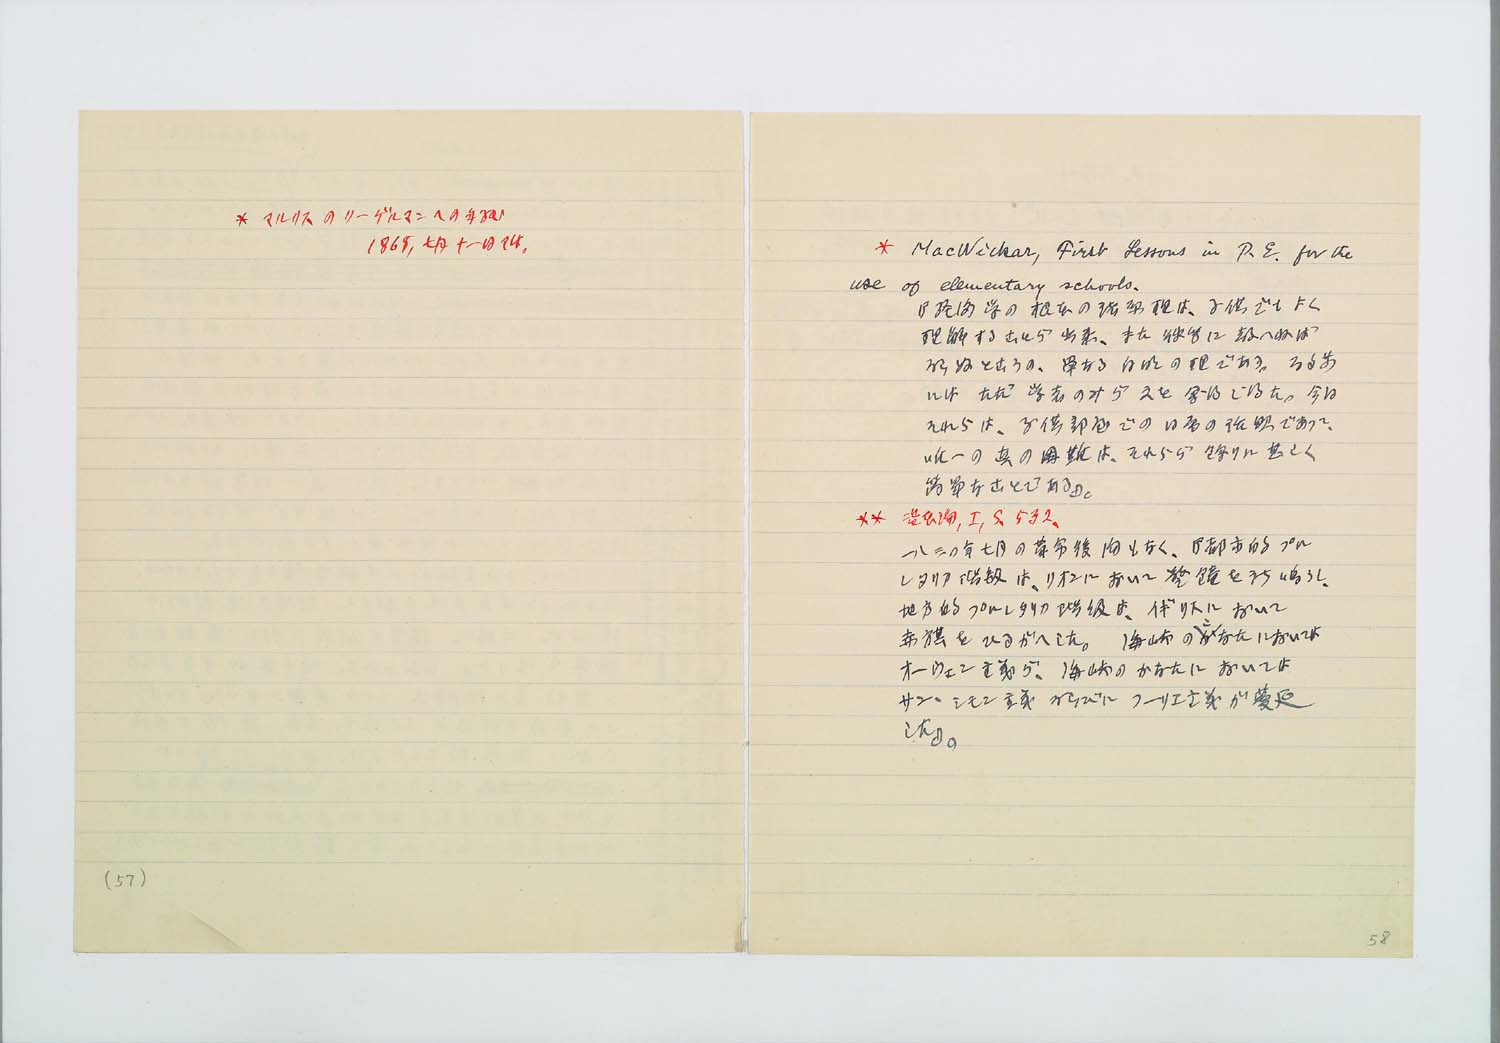 * マルクスのクーゲルマンへの手紙
1868, 七月十一日では。
(57)
* MacVickar, First Lessons in P. E. for the
use of elementary schools.
『経済学の根本の諸原理は、子供でもよく
理解することが出来、また彼等に教へねば
ならぬところの、単なる自明の理である。
にはただ学者のみが之を 今日
それらは、子供部屋での日常の であって、
唯一の真の困難は、それらが余りに甚しく
簡単なことである』。
** 資本論, I, S. 532.
一八三〇年七月の革命後間もなく、『都市的プロ
レタリア階級は、リオンにおいて警鐘を打ち鳴らし、
地方的プロレタリア階級は、イギリスにおいて
赤旗をひるがへした。 海峡のこなたにおいては
オーウェン主義が、海峡のかなたにおいては
サン・シモン主義ならびにフーリエ主義が蔓延
した』。
58